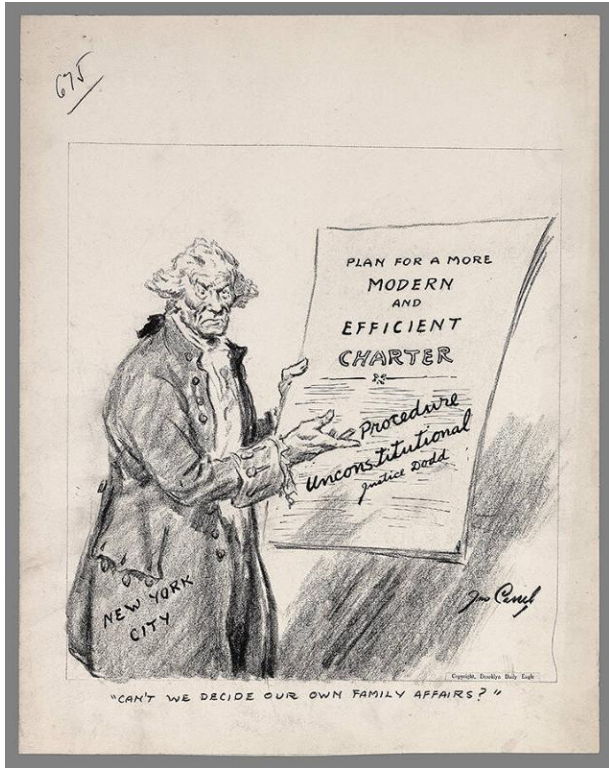 675
PLAN FOR A MORE
MODERN
AND
EFFICIENT
CHARTER
Procedure
Unconstitutional
Justice Dodd
NEW YORK
CITY
Copyright, Brooklyn Daily Eagle
"CAN'T WE DECIDE OUR OWN FAMILY AFFAIRS?"